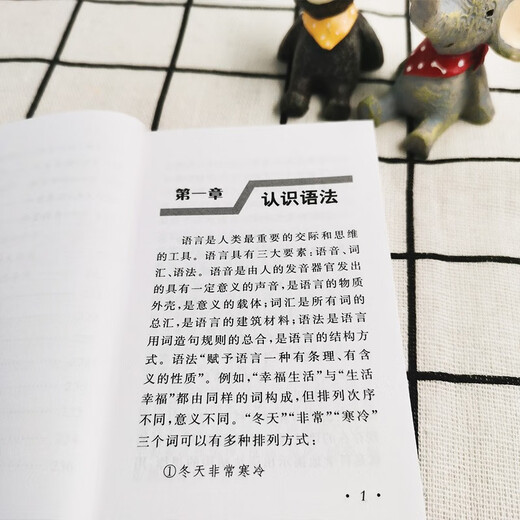 第一章
认识语法
语言是人类最重要的交际和思维
的工具。语言具有三大要素:语音、词
汇、语法。语音是由人的发音器官发出
的具有一定意义的声音,是语言的物质
外壳,是意义的载体;词汇是所有词的
总汇,是语言的建筑材料;语法是语言
用词造句规则的总合,是语言的结构方
式。语法“赋予语言一种有条理、有含
义的性质”。例如,“幸福生活”与“生活
幸福”都由同样的词构成,但排列次序
不同,意义不同。“冬天”“非常”“寒冷”
三个词可以有多种排列方式:
①冬天非常寒冷
· 1 ·